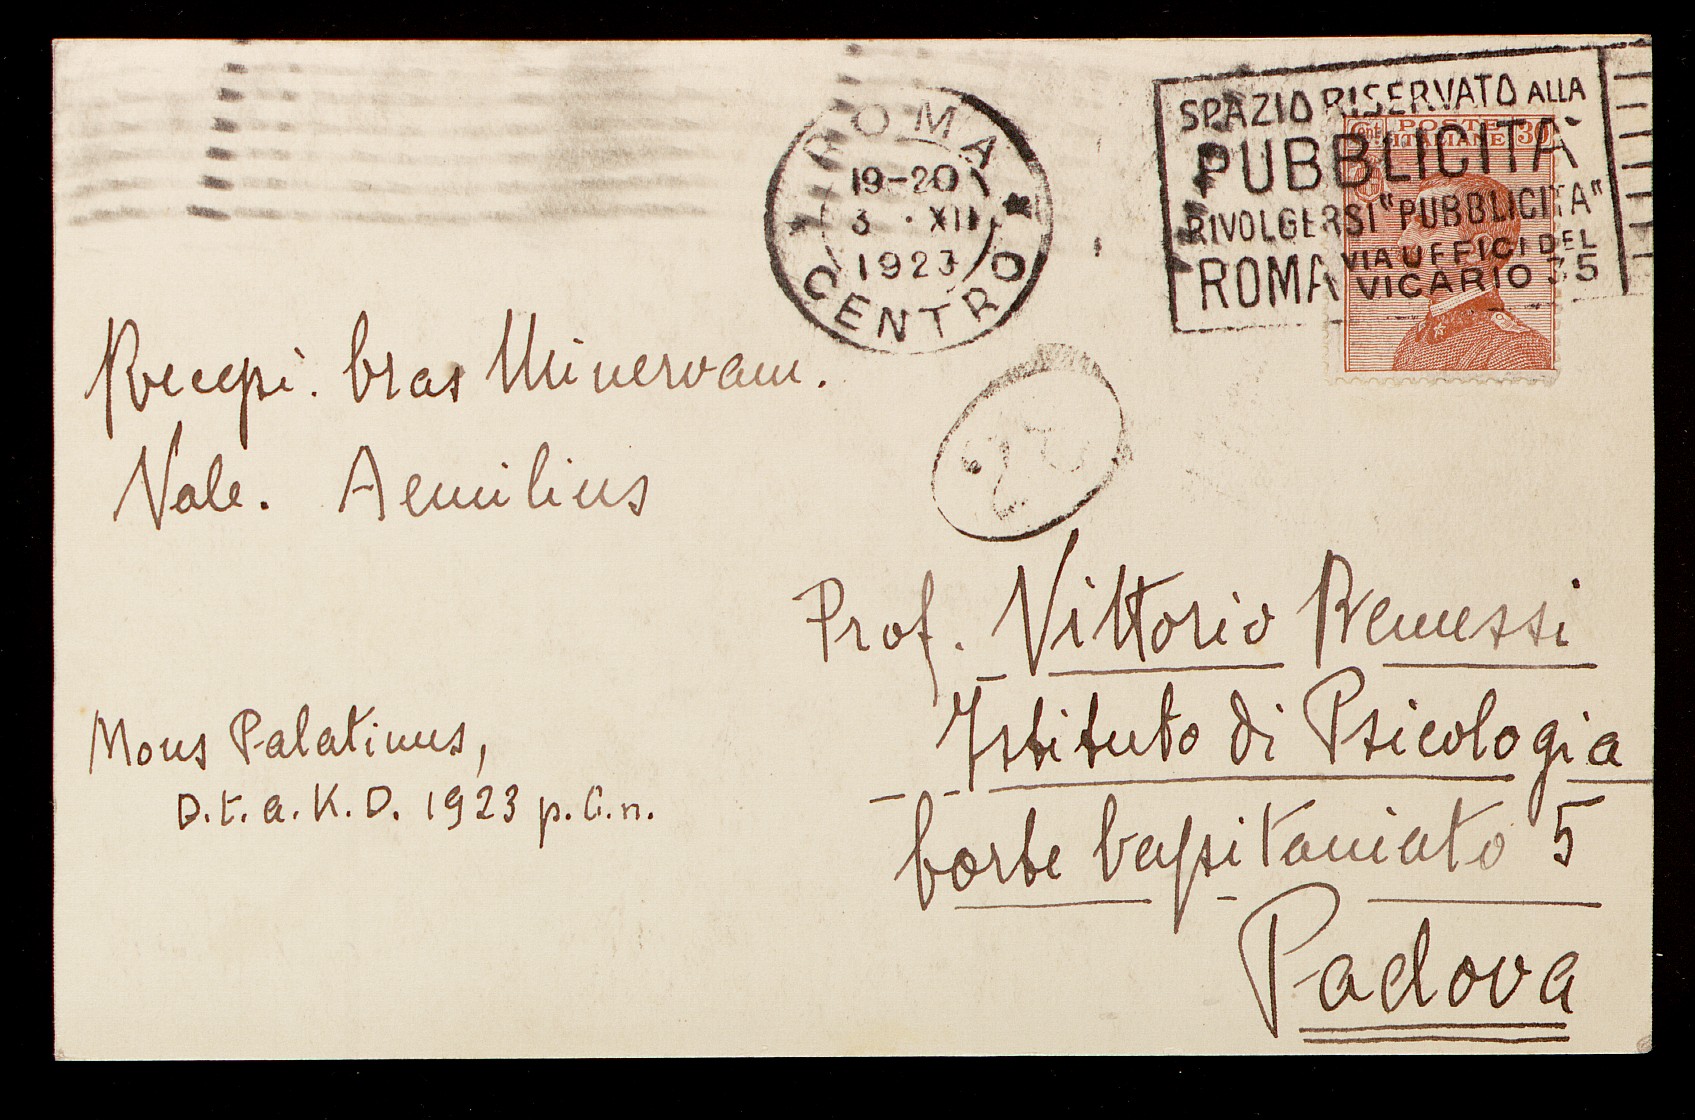 ROMA
19-20
3 · XII
1923
CENTRO
SPAZIO RISERVATO ALLA
PUBBLICITÀ
RIVOLGERSI "PUBBLICITA"
ROMA VIA UFFICI DEL
VICARIO 35
POSTE
ITALIANE
30
Recepi. Cras Minervam.
Vale. Aemilius
Mons Palatinus,
D.t.a.K.D. 1923 p.C.n.
Prof. Vittorio Benussi
Istituto di Psicologia
Corte Capitaniato 5
Padova